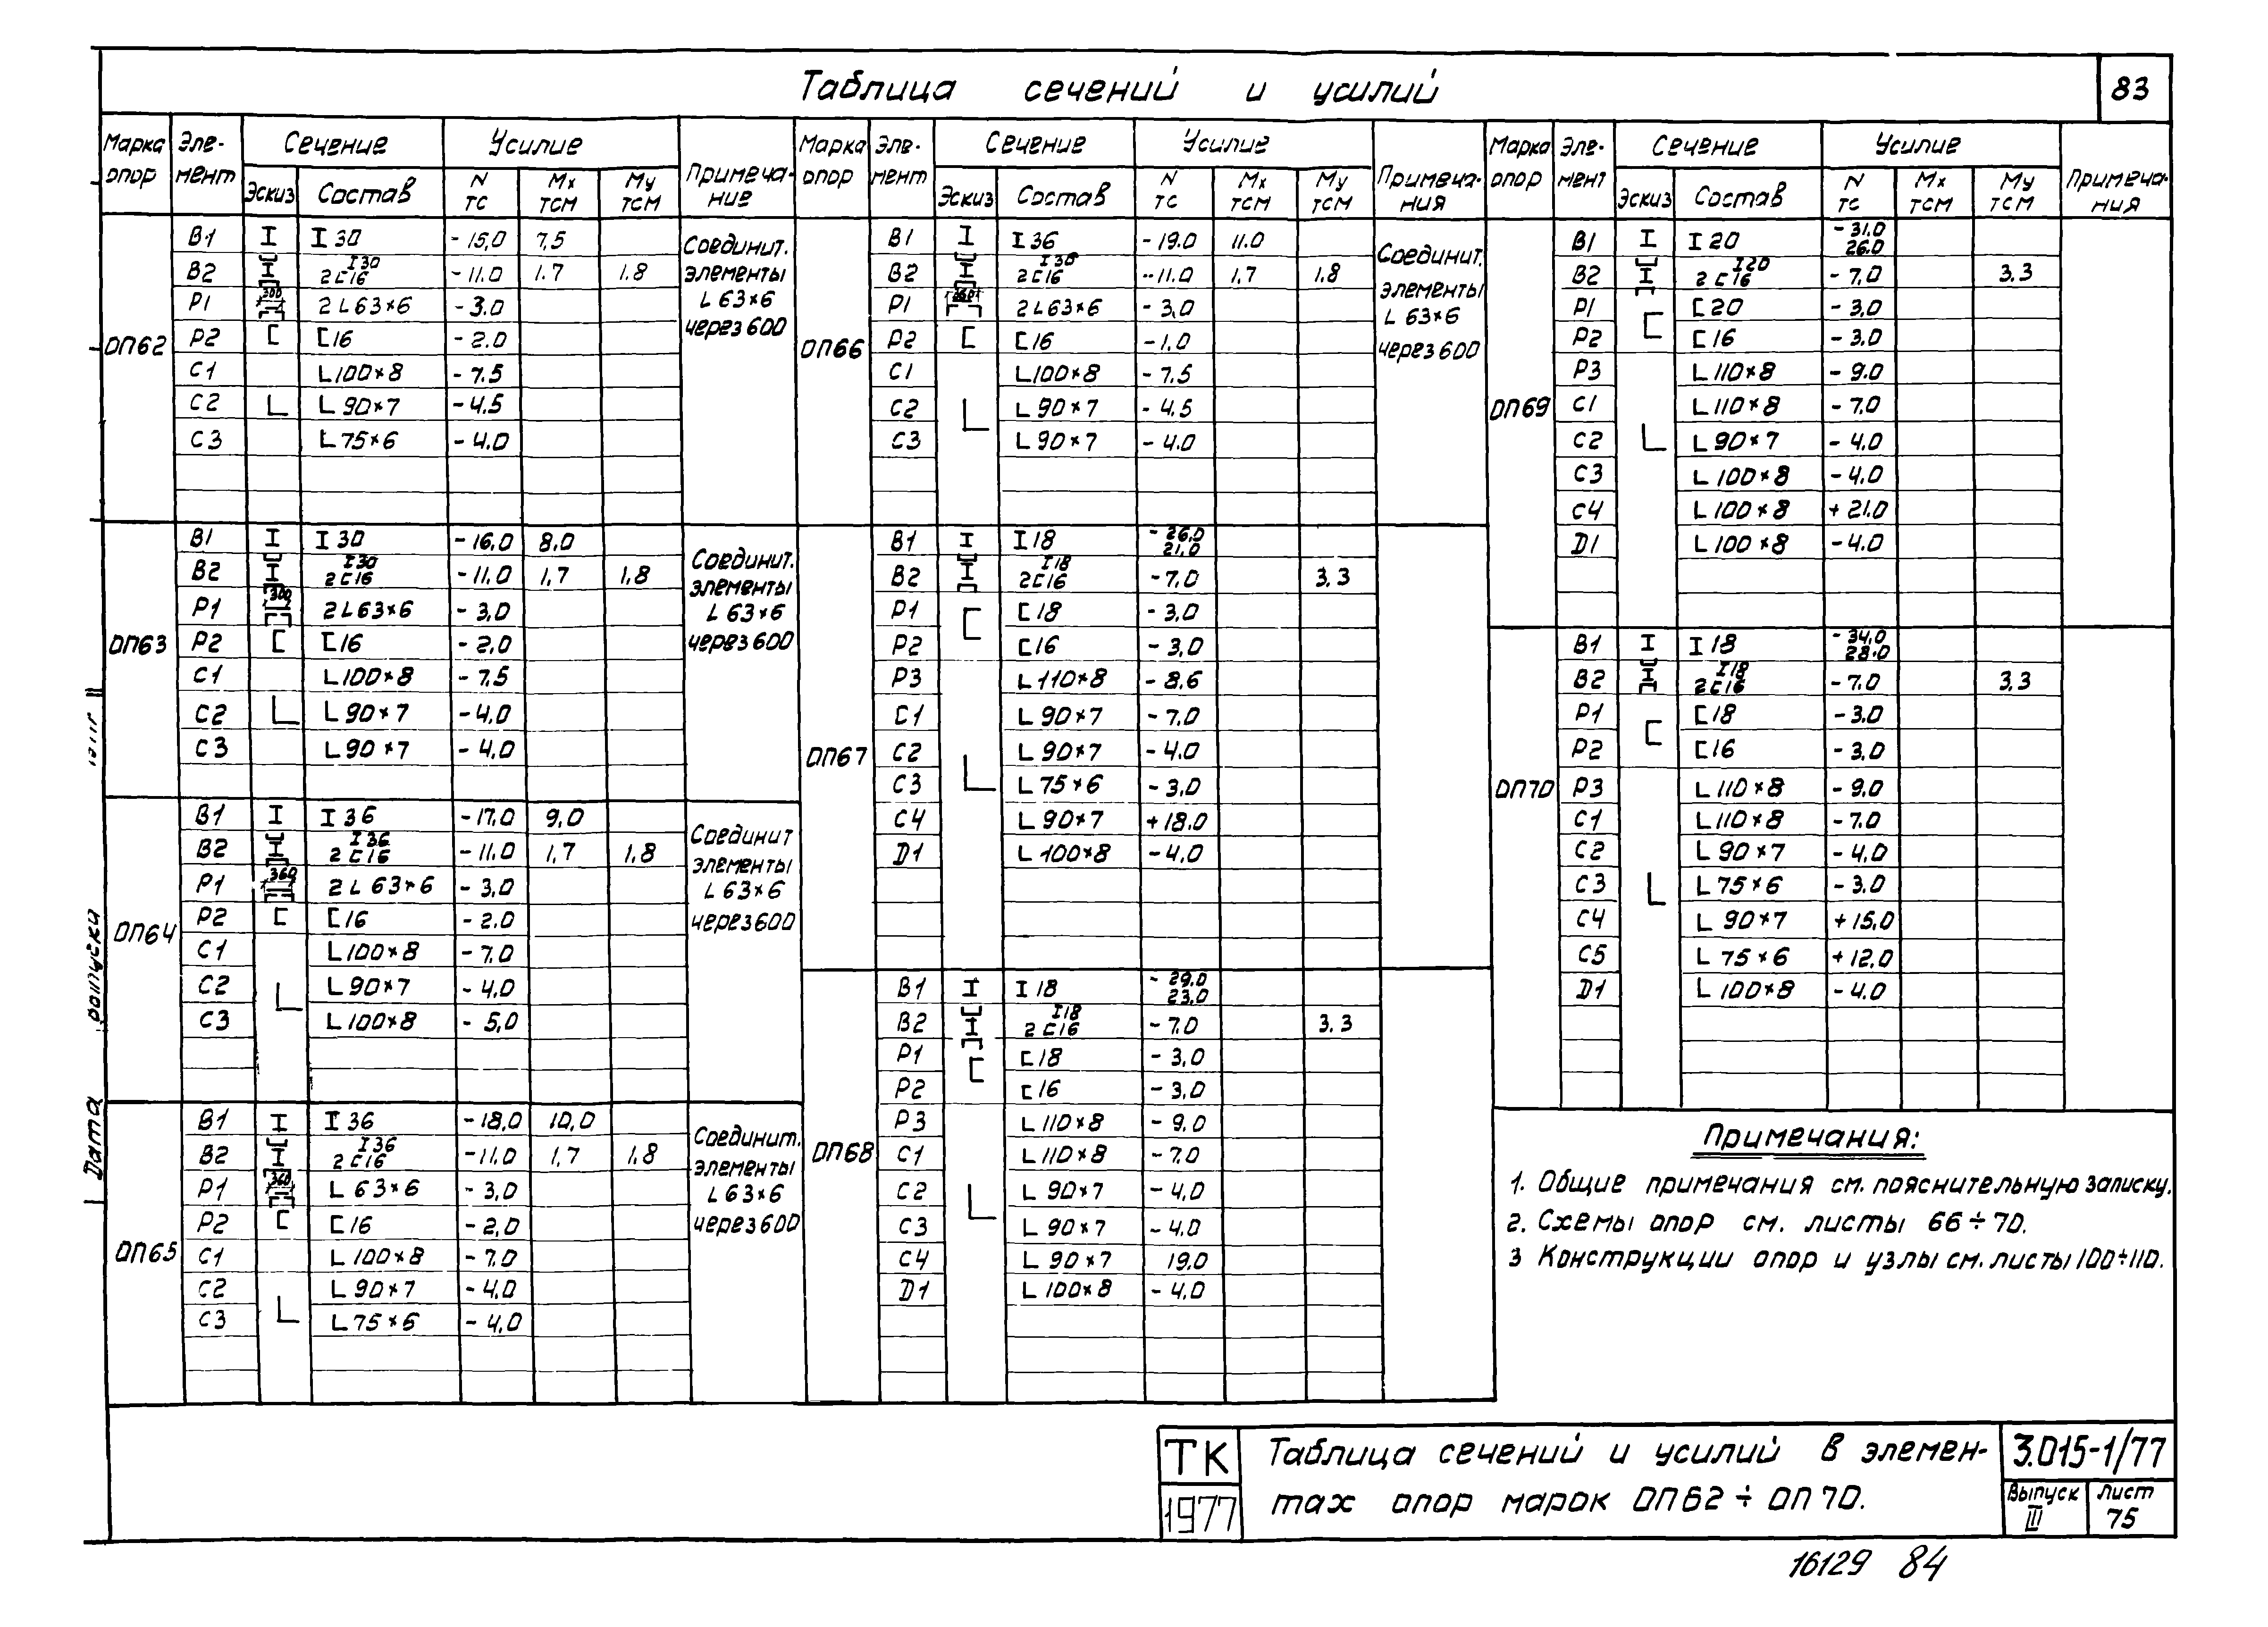 Таблица сечений и усилий
83
Марка опор Эле-мент Сечение Усилие Примеча-ние
Эскиз Состав N тс Mx тсм My тсм
ОП62
В1 I 30 -15,0 7,5
В2 I30 2[16 -11.0 1.7 1.8
Р1 300 2L63×6 -3.0
Р2 [16 -2.0
С1 L100×8 -7.5
С2 L90×7 -4.5
С3 L75×6 -4.0
Соединит.
элементы
L 63×6
через 600
ОП63
В1 I 30 -16,0 8,0
В2 I30 2[16 -11,0 1,7 1,8
Р1 300 2L63×6 -3,0
Р2 [16 -2,0
С1 L100×8 -7,5
С2 L90×7 -4,0
С3 L90×7 -4,0
Соединит.
элементы
L 63×6
через 600
ОП64
В1 I 36 -17,0 9,0
В2 I36 2[16 -11,0 1,7 1,8
Р1 360 2L63×6 -3,0
Р2 [16 -2.0
С1 L100×8 -7,0
С2 L90×7 -4,0
С3 L100×8 -5,0
Соединит
элементы
L 63×6
через 600
ОП65
В1 I 36 -18,0 10,0
В2 I36 2[16 -11,0 1,7 1,8
Р1 360 L63×6 -3,0
Р2 [16 -2,0
С1 L100×8 -7,0
С2 L90×7 -4,0
С3 L75×6 -4,0
Соединит.
элементы
L 63×6
через 600
Марка опор Эле-мент Сечение Усилие Примеча-ния
Эскиз Состав N тс Mx тсм My тсм
ОП66
В1 I 36 -19.0 11.0
В2 2[16 -11.0 1,7 1,8
Р1 360 2L63×6 -3,0
Р2 [16 -1.0
С1 L100×8 -7,5
С2 L90×7 -4,5
С3 L90×7 -4.0
Соединит.
элементы
L 63×6
через 600
ОП67
В1 I 18 -26,0 21,0
В2 I18 2[16 -7,0 3,3
Р1 [18 -3,0
Р2 [16 -3,0
Р3 L110×8 -8,6
С1 L90×7 -7,0
С2 L90×7 -4,0
С3 L75×6 -3,0
С4 L90×7 +18.0
Д1 L100×8 -4,0
ОП68
В1 I 18 -29.0 23,0
В2 I18 2[16 -7.0 3.3
Р1 [18 -3,0
Р2 [16 -3,0
Р3 L110×8 -9,0
С1 L110×8 -7,0
С2 L90×7 -4,0
С3 L90×7 -4.0
С4 L90×7 19.0
Д1 L100×8 -4,0
Марка опор Эле-мент Сечение Усилие Примеча-ния
Эскиз Состав N тс Mx тсм My тсм
ОП69
В1 I 20 -31.0 26.0
В2 I20 2[16 -7.0 3.3
Р1 [20 -3,0
Р2 [16 -3,0
Р3 L110×8 -9.0
С1 L110×8 -7,0
С2 L90×7 -4,0
С3 L100×8 -4,0
С4 L100×8 +21.0
Д1 L100×8 -4.0
ОП70
В1 I 18 -34,0 28.0
В2 I18 2[16 -7.0 3.3
Р1 [18 -3.0
Р2 [16 -3,0
Р3 L110×8 -9,0
С1 L110×8 -7.0
С2 L90×7 -4,0
С3 L75×6 -3,0
С4 L90×7 +15,0
С5 L75×6 +12,0
Д1 L100×8 -4.0
Примечания:
1. Общие примечания см. пояснительную записку.
2. Схемы опор см. листы 66÷70.
3 Конструкции опор и узлы см. листы 100÷110.
ТК
1977
Таблица сечений и усилий в элемен-
тах опор марок ОП62÷ОП70.
3.015-1/77
Выпуск III
Лист 75
16129 84
Дата выпуска